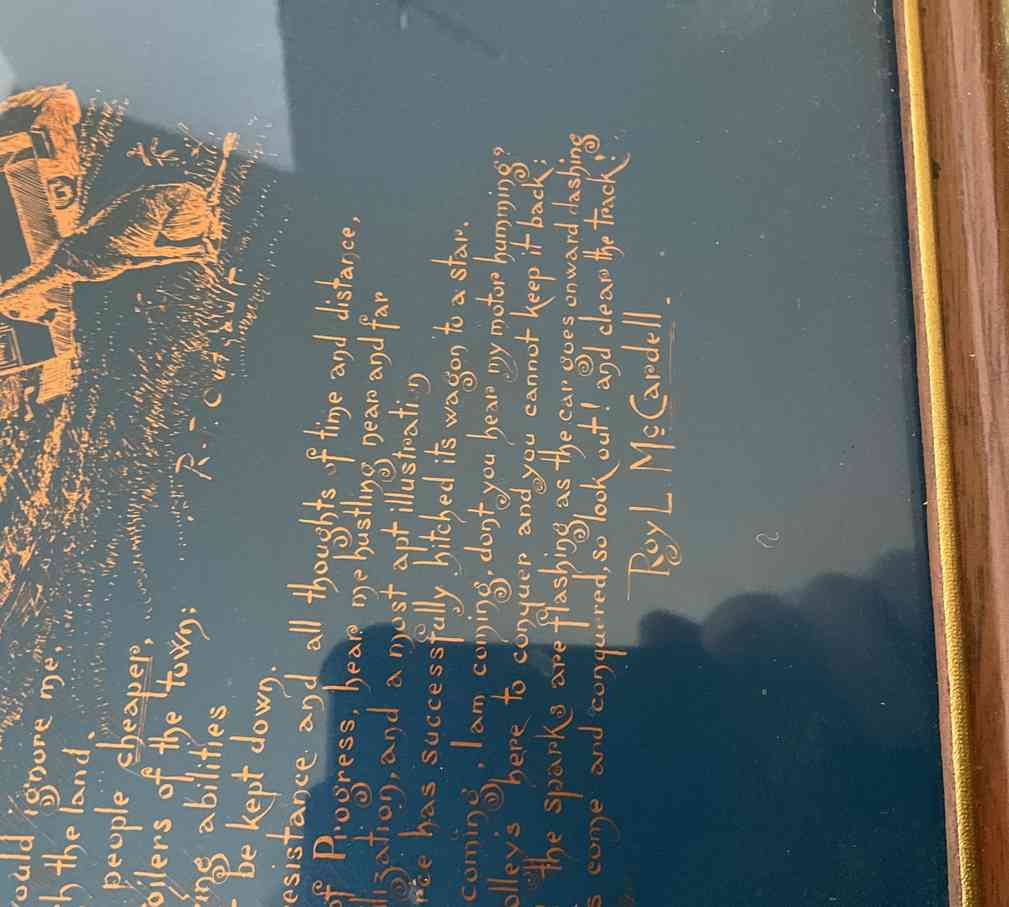 R. F. Outcault
ould ignore me,
h the land.
people cheaper,
oilers of the town;
ng abilities
be kept down.
esistance and all thoughts of time and distance,
of Progress, hear me hustling near and far
lization, and a most apt illustration
nce has successfully hitched its wagon to a star.
coming, I am coming, dont you hear my motor humming?
olleys here to conquer and you cannot keep it back;
the sparks are flashing as the car goes onward dashing
s come and conquered, so look out! and clear the track.
Roy L. McCardell.